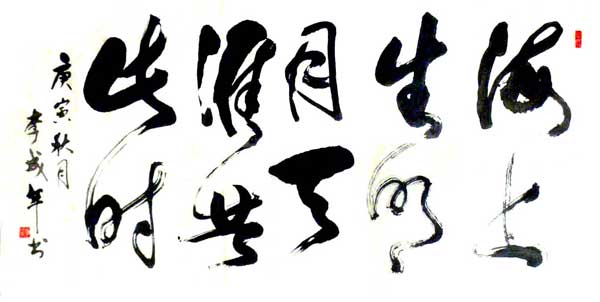 海上
生明
月天
涯共
此时
庚寅秋月
李成年书